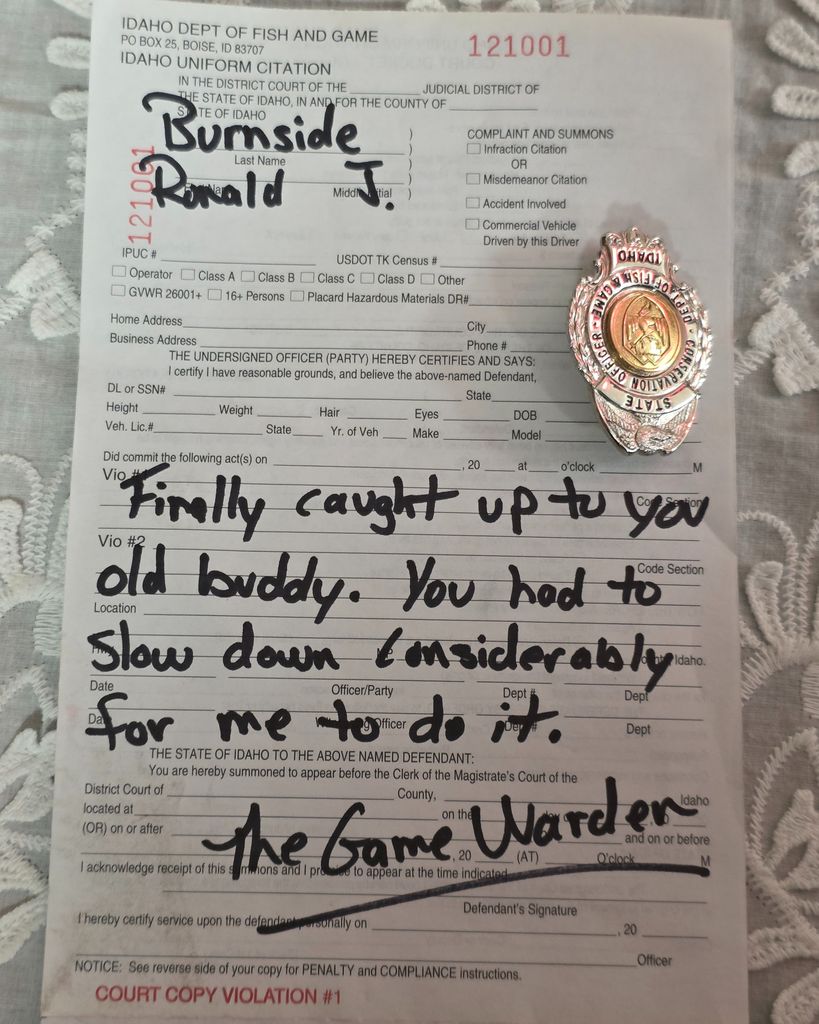 IDAHO DEPT OF FISH AND GAME
PO BOX 25, BOISE, ID 83707
121001
IDAHO UNIFORM CITATION
IN THE DISTRICT COURT OF THE ________ JUDICIAL DISTRICT OF
THE STATE OF IDAHO, IN AND FOR THE COUNTY OF ________
STATE OF IDAHO
Burnside )
Last Name )
Ronald J. )
Middle Initial )
121001
COMPLAINT AND SUMMONS
Infraction Citation
OR
Misdemeanor Citation
Accident Involved
Commercial Vehicle
Driven by this Driver
IPUC # ________ USDOT TK Census # ________
Operator Class A Class B Class C Class D Other
GVWR 26001+ 16+ Persons Placard Hazardous Materials DR# ________
Home Address ________ City ________
Business Address ________ Phone # ________
THE UNDERSIGNED OFFICER (PARTY) HEREBY CERTIFIES AND SAYS:
I certify I have reasonable grounds, and believe the above-named Defendant,
DL or SSN# ________ State ________
Height ____ Weight ____ Hair ____ Eyes ____ DOB ____
Veh. Lic.# ________ State ____ Yr. of Veh ____ Make ____ Model ____
IDAHO
DEPT OF FISH & GAME
CONSERVATION OFFICER
STATE
Did commit the following act(s) on ________, 20 ____ at ____ o'clock ____ M
Vio #1 Code Section
Finally caught up to you
Vio #2 Code Section
old buddy. You had to
Location
slow down considerably
Idaho.
Date Officer/Party Dept # Dept
for me to do it.
Officer Dept
THE STATE OF IDAHO TO THE ABOVE NAMED DEFENDANT:
You are hereby summoned to appear before the Clerk of the Magistrate's Court of the
District Court of ________ County, ________ Idaho
located at ________ on the
The Game Warden
(OR) on or after ________, 20 ____ (AT) O'clock ____ M
and on or before
I acknowledge receipt of this summons and I promise to appear at the time indicated.
Defendant's Signature
I hereby certify service upon the defendant personally on ________, 20 ____
Officer
NOTICE: See reverse side of your copy for PENALTY and COMPLIANCE instructions.
COURT COPY VIOLATION #1